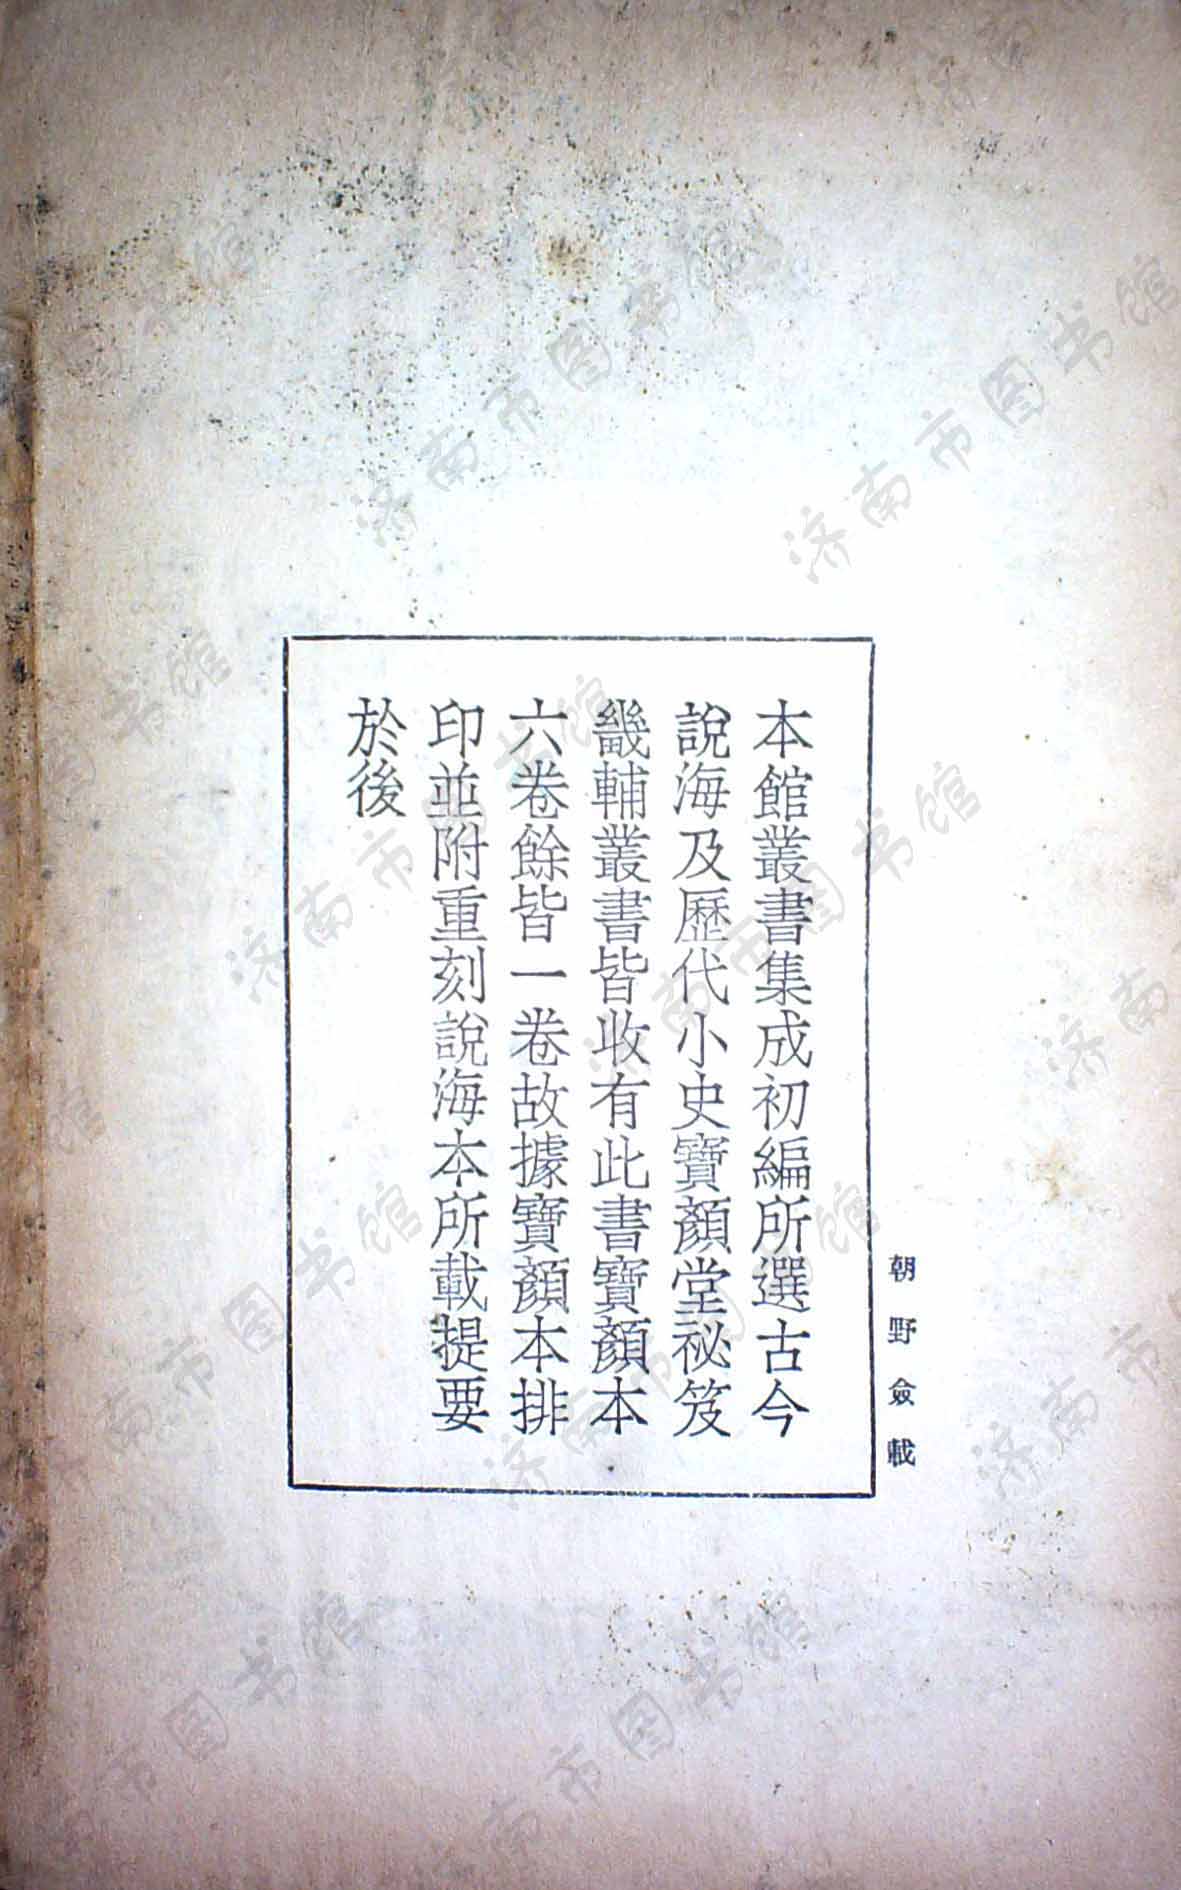 朝野僉載
本館叢書集成初編所選古今
說海及歷代小史寶顏堂祕笈
畿輔叢書皆收有此書寶顏本
六卷餘皆一卷故據寶顏本排
印並附重刻說海本所載提要
於後
济南市图书馆